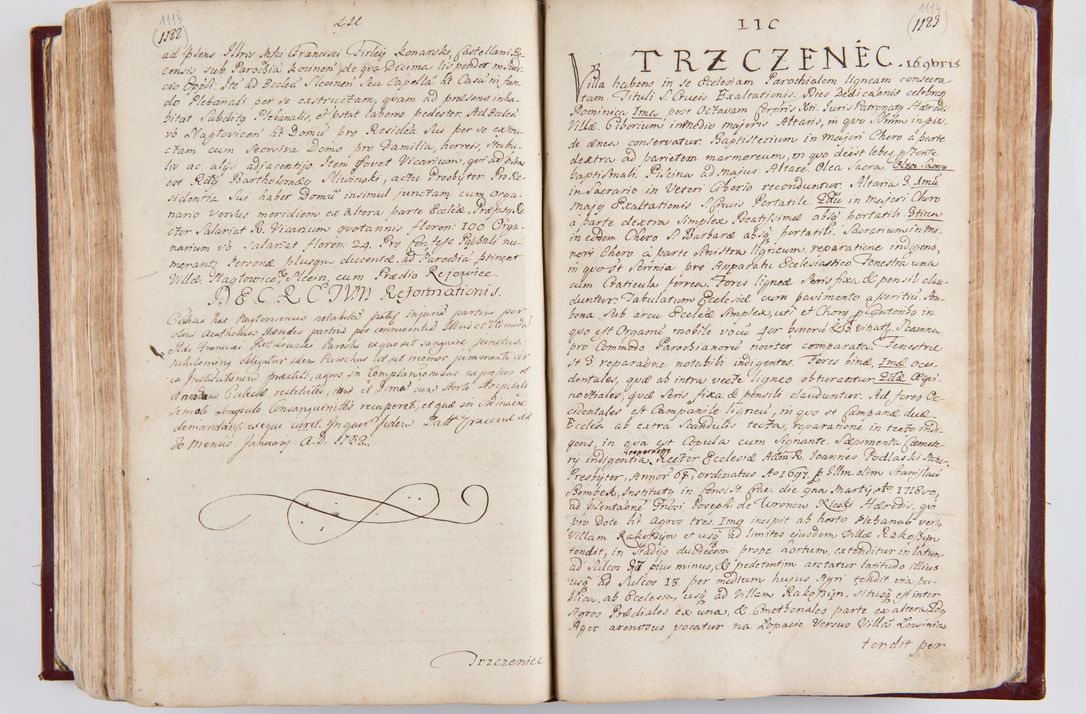 1113
(1122)
ad Psens Illris Mfci Francisci Firlej Konarsko, Castellani
censis sub Parochia Kosinen de qva Decima lis pendet in
cio Ste ad Eccleã Slconen seu Capellã ht Casã in fun
do Plebanali per se exstructam, quam ad præsens inha
bitat Subditg Plebanalis, et pstat labores pedester. Ad Eccleã
vò Nagłovicen ht Domũ pro Residẽa sua per se exstru
ctam cum seorsiva Domo pro Familia, horreis, stabu
lis ac alijs adjacentijs. Item fovet Vicarium, qvi ad præs
est Rdg Bartholomæg Sliwinski, actu Presbyter Pro Re
sidentia sua habet Domũ insimul junctam cum orga
nario versus meridiem ex altera parte Eccleæ. Præfatg Re
ctor Salariat R. Vicarium qvotannis floren: 100 Orga
narium vò salariat floren: 24. Pro
merantg Personæ plusqm ducentæ, ad Parochiã ptinent
Villæ. Nagłowice, & Slcin, cum Prædio Rejowice.
DECRETUM Reformationis.
Ecclesia hæc Nagłovicensis notabilem passa injuriam partim per
olim Acatholicos Hæredes partim per conniventiã
Rdi Francisci Parochi exquo sit sangvine junctus,
obligatur idem Parochus ut sit memor juramenti
ca Institutionem præstiti, agros in complanationibus expressos et
Ecclesiæ restitutos, et Domũ cum Horto Hospitalis
semoto Consangvinitatis recuperet, et quæ in Ordinatne
demandans exeqvi curet. In quor fidem Datt Cracoviæ die
20 Mensis Januarij A. D. 1732.
Trzczeniec
1114
(1123)
LIC
TRZCZENIEC. 16 9bris
Villa habens in se Ecclesiam Parochialem ligneam consecra
tam Tituli S. Crucis Exaltationis. Dies Dedicaõnis celebratg
Dominica Ima post Octavam Corpris Xti. Juris Patronatg Hæredũ
Villæ. Ciborium in medio majoris Altaris, in qvo Sſmum in pixi
de æneâ conservatur. Baptisterium in majori Choro a parte
dextra ad parietem marmoreum, in quo deest lebes p fonte
baptismali. Piscina ad majus Altare. Olea Sacra. Olea Sacra
in Sacrario in Veteri Ciborio reconduntur. Altaria 3. Imũ
majg Exaltationis S. Crucis Portatile. 2dũ in Majori Choro
à parte dextra simplex Beatissimæ absq portatili. 3tium
in eodem Choro S. Barbaræ absq portatili. Sacrarium in mi
nori Choro a parte sinistra ligneum, reparatione indigens,
in qvo st Scrinia pro Apparatu Ecclesiastico. Fenestra una
cum Craticula ferrea. Fores ligneæ seris fixa, & pensili clau
duntur. Tabulatum Ecclesiæ cum pavimento asseritiũ. Am
bona Sub arcu Ecclæ simplex, uti et Chorg p Cantoribg in
quo est Organũ mobile vocũ 4or binorũ Scamna
pro Commodo Parochianorũ noviter comparata. Fenestræ
st 3. reparaõne notabili indigentes. Fores binæ, Imæ occi
dentales, quæ ab intra vecte ligneo obturantur. 2dæ Æqui
noctiales, quæ seris fixa & pensili clauduntur. Ad fores Oc
cidentales est Campanile ligneũ, in qvo st Campanæ duæ.
Ecclea ab extra Scandulis tecta, reparatione in tecto indi
gens, in qva est Copula cum signante. Sæpimenta Cæmete
rij indigentia reparaõne. Rector Ecclesiæ Adm R. Joannes Podlaski
Presbyter, Annor 67, ordinatus Ao 1697. p Illm olim Stanislaũ
Szembek, Institutg in 9ma Martij Ao 1718vo,
ad pſentaõne Gñosi Josephi de Wronow Rieski Hæredis, qvi
pro Dote ht agros tres. Img incipit ab horto Plebanali versg
Villam Rakoszyn et usq ad limites ejusdem Villæ Rakoszyn
tendit, in Stadijs duodecem prope hortum, extenditur in latum
ad sulcos plus minus, & pedetentim arctatur latitudo illius
usq ad sulcos 18. per medium hujus Agri tendit via pu
blica, ab Ecclesia, usq ad Villam Rakoszyn, situsq est inter
Agros Prædiales ex una, & Cmethonales parte ex altera. 2dg
Ager arenosus vocatur na Łopasie versus Villã Łowinia
tendit per